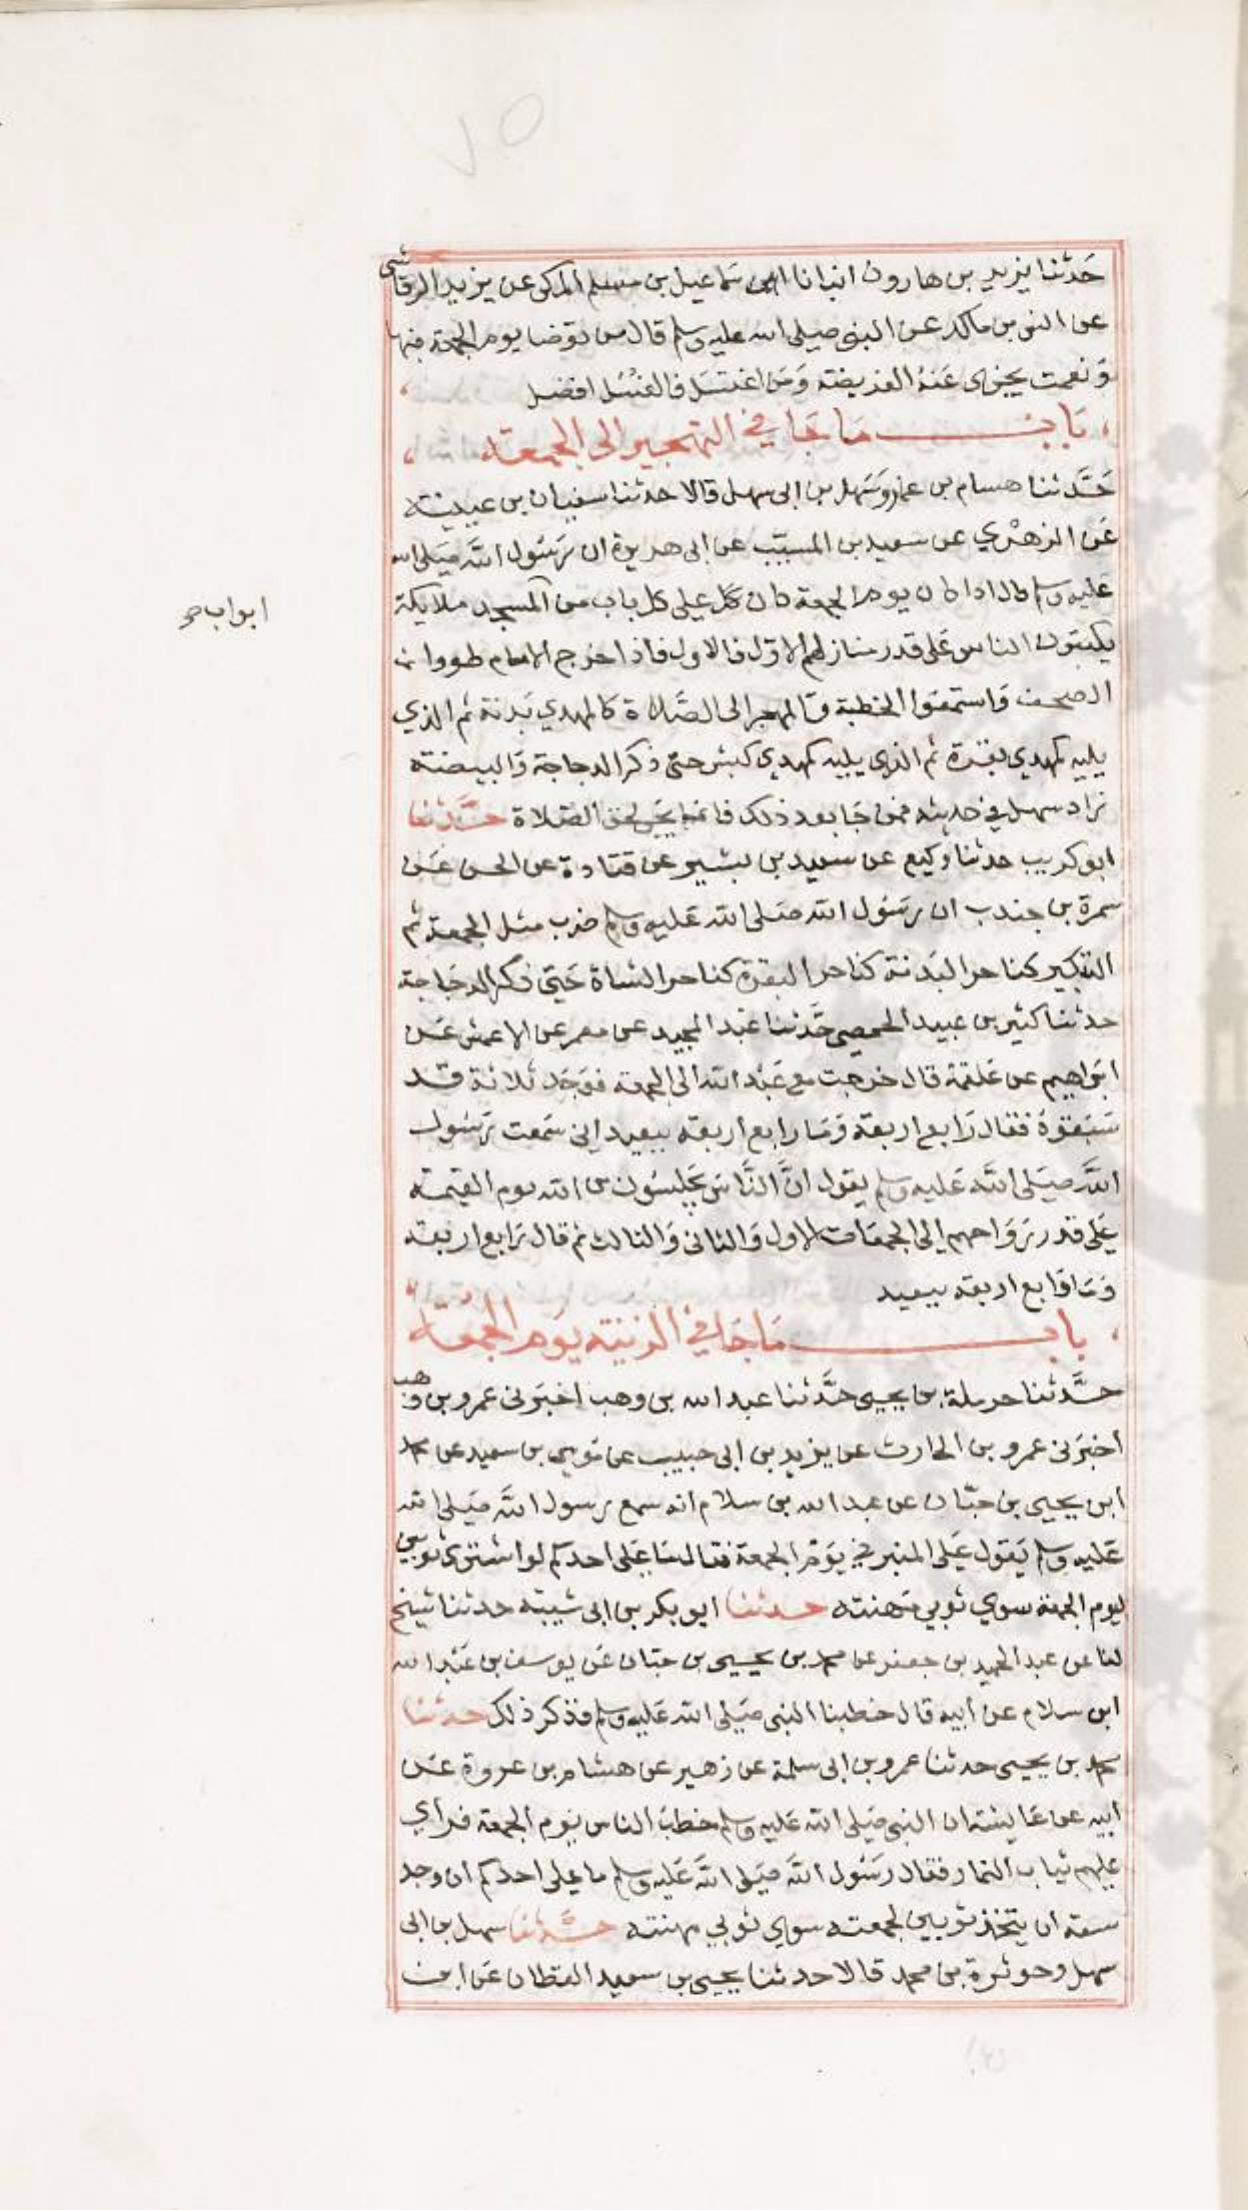 ٧٥
حدثنا يزيد بن هارون انبانا اسماعيل بن مسلم المكي عن يزيد الرقاشي
عن انس بن مالك عن النبي صلى الله عليه وسلم قال من توضا يوم الجمعة فبها
ونعمت يجزي عنه الفريضة ومن اغتسل فالغسل افضل
باب ما جا في التهجير الى الجمعة
حدثنا هشام بن عمار وسهل بن ابي سهل قالا حدثنا سفيان بن عيينة
عن الزهري عن سعيد بن المسيب عن ابي هريرة ان رسول الله صلى الله
عليه وسلم قال اذا كان يوم الجمعة كان على كل باب من المسجد ملايكة
يكتبون الناس على قدر منازلهم الاول فالاول فاذا خرج الامام طووا
الصحف واستمعوا الخطبة فالمهجر الى الصلاة كالمهدي بدنة ثم الذي
يليه كمهدي بقرة ثم الذي يليه كمهدي كبش حتى ذكر الدجاجة والبيضة
زاد سهل في حديثه فمن جا بعد ذلك فانما يجي لحق الصلاة حدثنا
ابو كريب حدثنا وكيع عن سعيد بن بشير عن قتادة عن الحسن عن
سمرة بن جندب ان رسول الله صلى الله عليه وسلم ضرب مثل الجمعة ثم
التبكير كناحر البدنة كناحر البقرة كناحر الشاة حتى ذكر الدجاجة
حدثنا كثير بن عبيد الحمصي حدثنا عبد المجيد عن معمر عن الاعمش عن
ابراهيم عن علقمة قال خرجت مع عبد الله الى الجمعة فوجد ثلاثة قد
سبقوه فقال رابع اربعة وما رابع اربعة ببعيد اني سمعت رسول
الله صلى الله عليه وسلم يقول ان الناس يجلسون من الله يوم القيمة
على قدر رواحهم الى الجمعات الاول والثاني والثالث ثم قال رابع اربعة
وما رابع اربعة ببعيد
باب ما جا في الزينة يوم الجمعة
حدثنا حرملة بن يحيى حدثنا عبد الله بن وهب اخبرني عمرو بن وهب
اخبرني عمرو بن الحارث عن يزيد بن ابي حبيب عن موسى بن سعيد عن محمد
ابن يحيى بن حبان عن عبد الله بن سلام انه سمع رسول الله صلى الله
عليه وسلم يقول على المنبر في يوم الجمعة فقال ما على احدكم لو اشترى ثوبين
ليوم الجمعة سوي ثوبي مهنته حدثنا ابو بكر بن ابي شيبة حدثنا شيخ
لنا عن عبد الحميد بن جعفر عن محمد بن يحيى بن حبان عن يوسف بن عبد الله
ابن سلام عن ابيه قال خطبنا النبي صلى الله عليه وسلم فذكر ذلك حدثنا
محمد بن يحيى حدثنا عمرو بن ابي سلمة عن زهير عن هشام بن عروة عن
ابيه عن عايشة ان النبي صلى الله عليه وسلم خطب الناس يوم الجمعة فراي
عليهم ثياب النمار فقال رسول الله صلى الله عليه وسلم ما على احدكم ان وجد
سعة ان يتخذ ثوبين لجمعته سوي ثوبي مهنته حدثنا سهل بن ابي
سهل وحوثرة بن محمد قالا حدثنا يحيى بن سعيد القطان عن ابن
ابواب